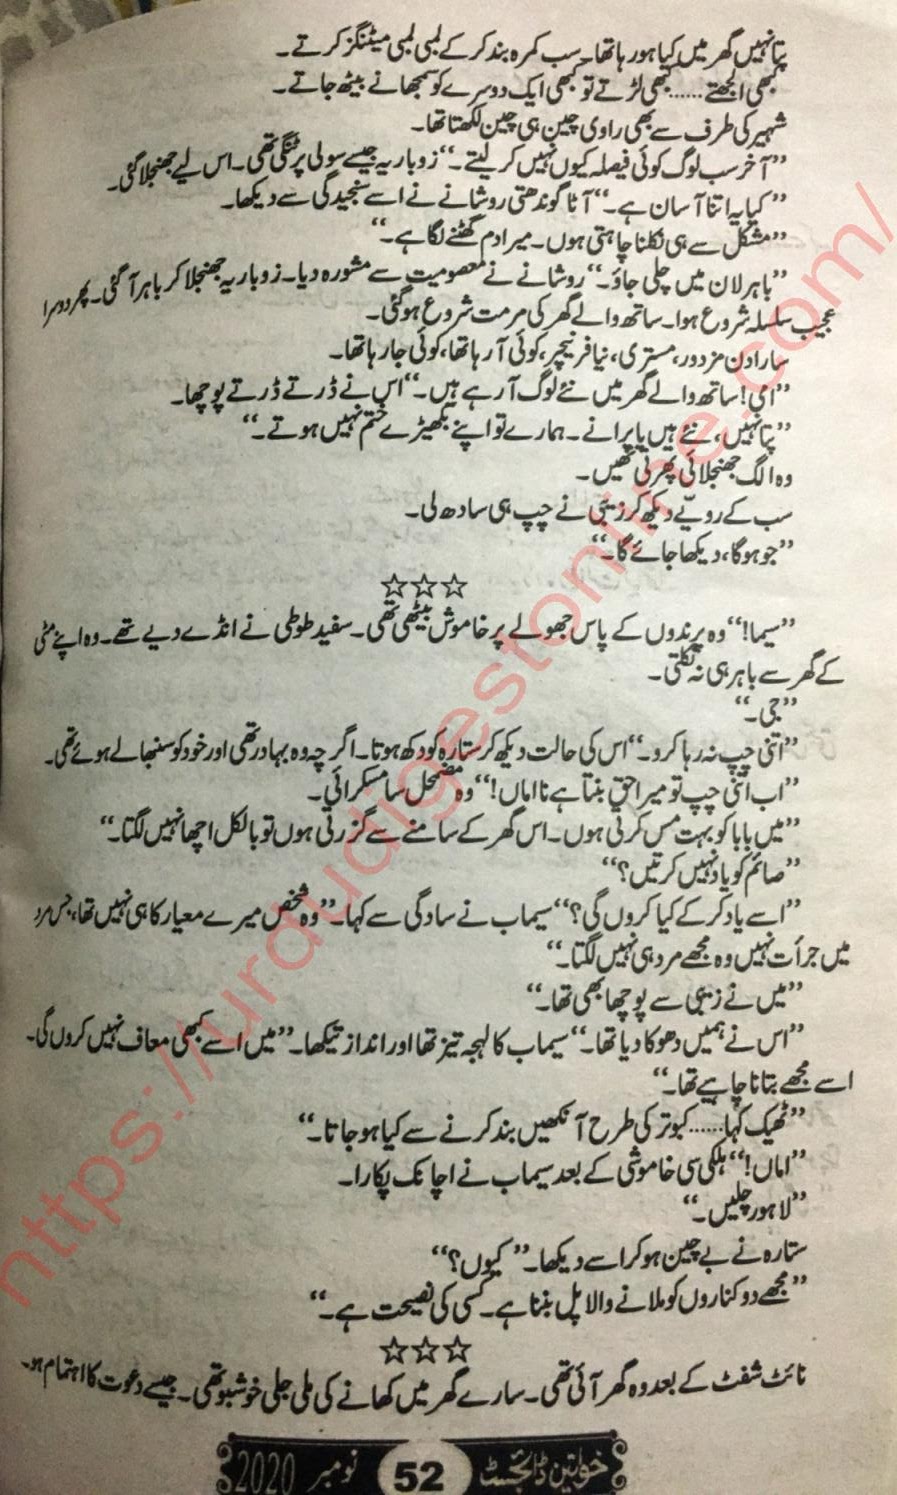 پتا نہیں گھر میں کیا ہو رہا تھا۔ سب کمرہ بند کر کے لمبی لمبی میٹنگز کرتے۔
کبھی الجھتے ...... کبھی لڑتے تو کبھی ایک دوسرے کو سمجھانے بیٹھ جاتے۔
شہیر کی طرف سے بھی راوی چین ہی چین لکھتا تھا۔
”آخر سب لوگ کوئی فیصلہ کیوں نہیں کر لیتے۔“ زوباریہ جیسے سولی پر ٹنگی تھی۔ اس لیے جھنجلا گئی۔
”کیا یہ اتنا آسان ہے۔“ آٹا گوندھتی روشانے نے اسے سنجیدگی سے دیکھا۔
”مشکل سے ہی نکلنا چاہتی ہوں۔ میرا دم گھٹنے لگا ہے۔“
”باہر لان میں چلی جاؤ۔“ روشانے نے معصومیت سے مشورہ دیا۔ زوباریہ جھنجلا کر باہر آ گئی۔ پھر دوسرا
عجیب سلسلہ شروع ہوا۔ ساتھ والے گھر کی مرمت شروع ہو گئی۔
سارا دن مزدور، مستری، نیا فرنیچر، کوئی آ رہا تھا، کوئی جا رہا تھا۔
”امی! ساتھ والے گھر میں نئے لوگ آ رہے ہیں۔“ اس نے ڈرتے ڈرتے پوچھا۔
”پتا نہیں، نئے ہیں یا پرانے۔ ہمارے تو اپنے بکھیڑے ختم نہیں ہوتے۔“
وہ الگ جھنجلائی پھرتی تھیں۔
سب کے رویے دیکھ کر زیبی نے چپ ہی سادھ لی۔
”جو ہوگا، دیکھا جائے گا۔“
☆☆☆
”سیما!“ وہ پرندوں کے پاس جھولے پر خاموش بیٹھی تھی۔ سفید طوطی نے انڈے دیے تھے۔ وہ اپنے مٹی
کے گھر سے باہر ہی نہ نکلتی۔
”جی۔“
”اتنی چپ نہ رہا کرو۔“ اس کی حالت دیکھ کر ستارہ کو دکھ ہوتا۔ اگر چہ وہ بہادر تھی اور خود کو سنبھالے ہوئے تھی۔
”اب اتنی چپ تو میرا حق بنتا ہے نا اماں!“ وہ مضمحل سا مسکرائی۔
”میں بابا کو بہت مس کرتی ہوں۔ اس گھر کے سامنے سے گزرتی ہوں تو بالکل اچھا نہیں لگتا۔“
”صائم کو یاد نہیں کرتیں؟“
”اسے یاد کر کے کیا کروں گی؟“ سیماب نے سادگی سے کہا۔ ”وہ شخص میرے معیار کا ہی نہیں تھا، جس مرد
میں جرأت نہیں وہ مجھے مرد ہی نہیں لگتا۔“
”میں نے زیبی سے پوچھا بھی تھا۔“
”اس نے ہمیں دھوکا دیا تھا۔“ سیماب کا لہجہ تیز تھا اور انداز تیکھا۔ ”میں اسے کبھی معاف نہیں کروں گی۔
اسے مجھے بتانا چاہیے تھا۔“
”ٹھیک کہا ...... کبوتر کی طرح آنکھیں بند کرنے سے کیا ہو جاتا۔“
”اماں!“ ہلکی سی خاموشی کے بعد سیماب نے اچانک پکارا۔
”لاہور چلیں۔“
ستارہ نے بے چین ہو کر اسے دیکھا۔ ”کیوں؟“
”مجھے دو کناروں کو ملانے والا پل بننا ہے۔ کسی کی نصیحت ہے۔“
☆☆☆
نائٹ شفٹ کے بعد وہ گھر آئی تھی۔ سارے گھر میں کھانے کی ملی جلی خوشبو تھی۔ جیسے دعوت کا اہتمام ہو۔
خواتین ڈائجسٹ 52 نومبر 2020
https://urdudigestonline.com/